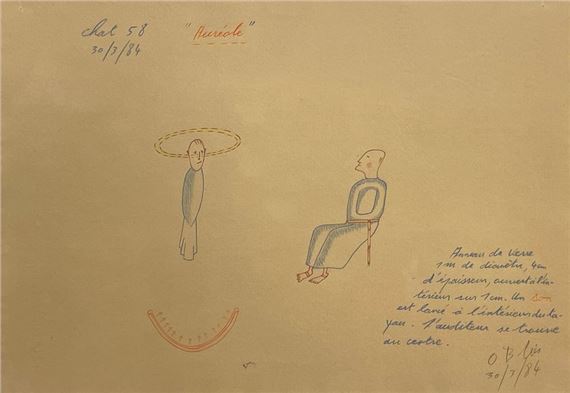 chat 58 "Auréole"
30/3/84
Anneau de verre
1m de diamètre, 4cm
d'épaisseur, ouvert à l'in-
térieur sur 1cm. Un son
est lancé à l'intérieur du tu-
yau. L'auditeur se trouve
au centre.
30/3/84